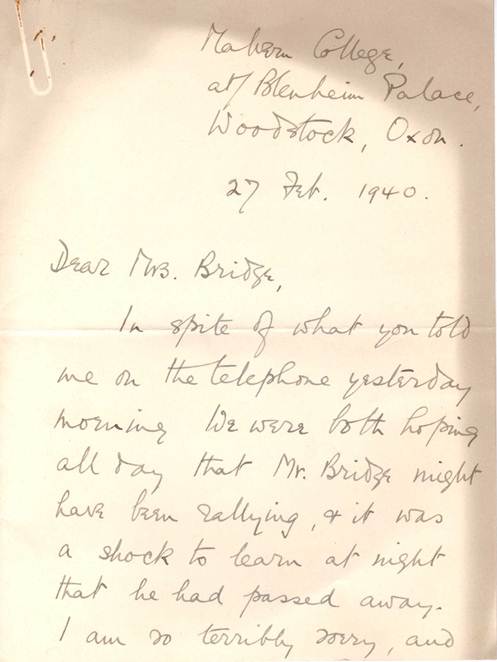 Malvern College,
at/ Blenheim Palace,
Woodstock, Oxon.
27 Feb. 1940.
Dear Mrs. Bridge,
In spite of what you told
me on the telephone yesterday
morning We were both hoping
all day that Mr. Bridge might
have been rallying, & it was
a shock to learn at night
that he had passed away.
I am so terribly sorry, and